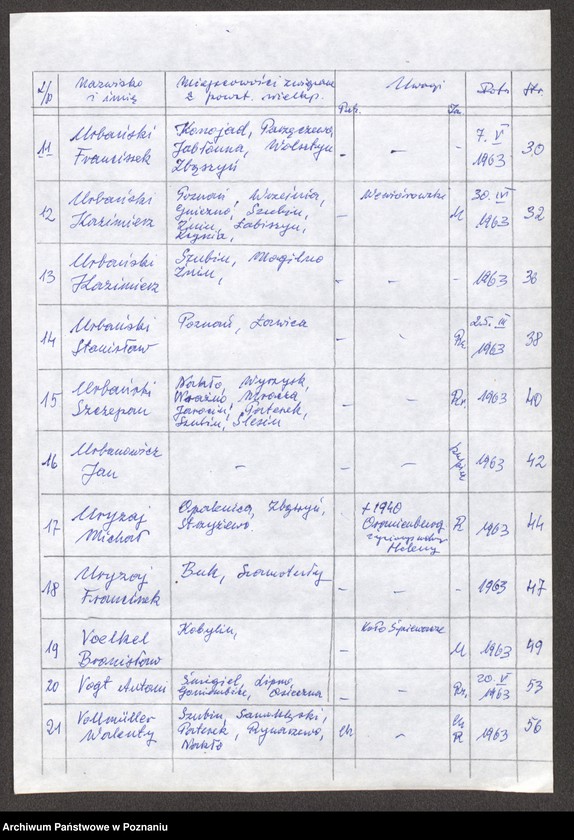 L/p Nazwisko i imię Miejscowości związane z powst. wielkp. Uwagi Data Str.
11 Urbański Franciszek Konojad, Parzęczewo, Jabłonna, Wolsztyn Zbąszyń - - - 7. VI 1963 30
12 Urbański Kazimierz Poznań, Września, Gniezno, Szubin, Żnin, Łabiszyn, Kcynia, - M 1963 32
13 Urbański Kazimierz Szubin, Mogilno Żnin, - - - 1963 36
14 Urbański Stanisław Poznań, Ławica - 25. III 1963 38
15 Urbański Szczepan Nakło, Wyrzysk, Mrocza Jarocin, Paterek, Szubin, Ślesin - - 1963 40
16 Urbanowicz Jan - - 1963 42
17 Uryzaj Michał Opalenica, Zbąszyń, +1940 Oranienburg Heleny R 1963 44
18 Uryzaj Franciszek Buk, Szamotuły - - - 1963 47
19 Voelkel Bronisław Kobylin, - Koło Śpiewacze M 1963 49
20 Vogt Antoni Śmigiel, Lipno, Osieczna - - 20. V 1963 53
21 Vollmüller Walenty Szubin, Paterek, Rynarzewo, Nakło - R 1963 56
Archiwum Państwowe w Poznaniu